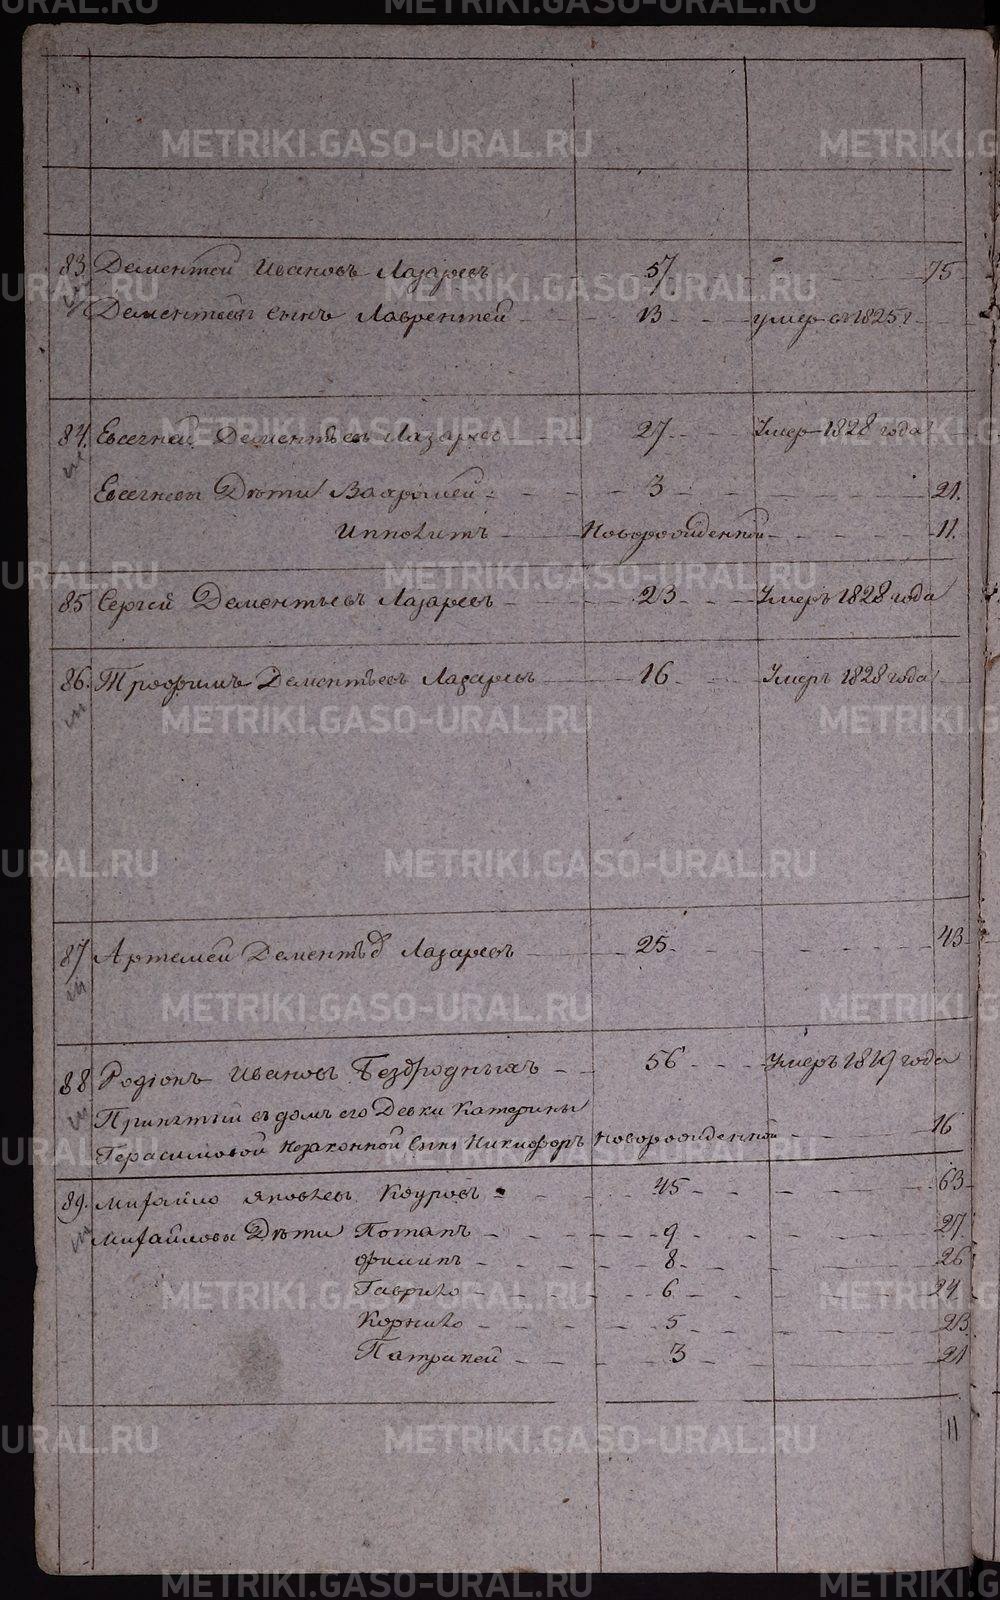 METRIKI.GASO-URAL.RU
83 Дементей Ивановъ Лазаревъ 57 75
Дементьевъ сынъ Лаврентей 13 умер въ 1825 г
84. Евсегней Дементьевъ Лазаревъ 27 Умер 1828 года
Евсегневы Дѣти 3 21.
Ипполитъ Новорожденной 11.
85 Сергей Дементьевъ Лазаревъ 23 Умеръ 1828 года
86. Трофимъ Дементьевъ Лазаревъ 16 Умеръ 1828 года
87 Артемей Дементьев Лазаревъ 25 43
88 Родіонъ Ивановъ Безродныхъ 56 Умеръ 1819 года
Принятый въ домъ его Девки Катерины
Герасимовой Незаконной сынъ Никифоръ Новорожденной 16
89. Михайло Яковлевъ Кауровъ 45 63
Михайловы Дѣти Потапъ 9 27
Филипъ 8 26
Гаврило 6 24
Корнило 5 23
Патрикей 3 21
11